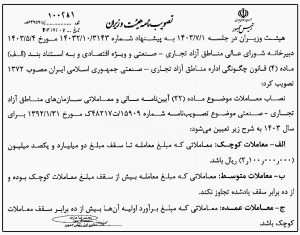 تصویب‌نامه هیئت وزیران
۱۰۰۲۸۱
هیئت وزیران در جلسه ۱۴۰۳/۷/۱ به پیشنهاد شماره ۱۴۰۳۲/۱۰/۳۱۴۳ مورخ ۱۴۰۳/۵/۴
دبیرخانه شورای عالی مناطق آزاد تجاری – صنعتی و ویژه اقتصادی و به استناد بند (الف)
ماده (۴) قانون چگونگی اداره مناطق آزاد تجاری – صنعتی جمهوری اسلامی ایران مصوب ۱۳۷۲
تصویب کرد:
نصاب معاملات موضوع ماده (۲۲) آیین‌نامه مالی و معاملاتی سازمان‌های مناطق آزاد
تجاری – صنعتی موضوع تصویب‌نامه شماره ۱۵۹۰۹/ت۴۸۲۱۷ک مورخ ۱۳۹۲/۱/۳۱ برای
سال ۱۴۰۳ به شرح زیر تعیین می‌شود:
الف- معاملات کوچک: معاملاتی که مبلغ معامله تا سقف مبلغ دو میلیارد و یکصد میلیون
(۲/۱۰۰/۰۰۰/۰۰۰) ریال باشد.
ب- معاملات متوسط: معاملاتی که مبلغ معامله بیش از سقف مبلغ معاملات کوچک بوده و
از ده برابر سقف یادشده تجاوز نکند.
ج- معاملات عمده: معاملاتی که مبلغ برآورد اولیه آن‌ها بیش از ده برابر سقف معاملات
کوچک باشد.